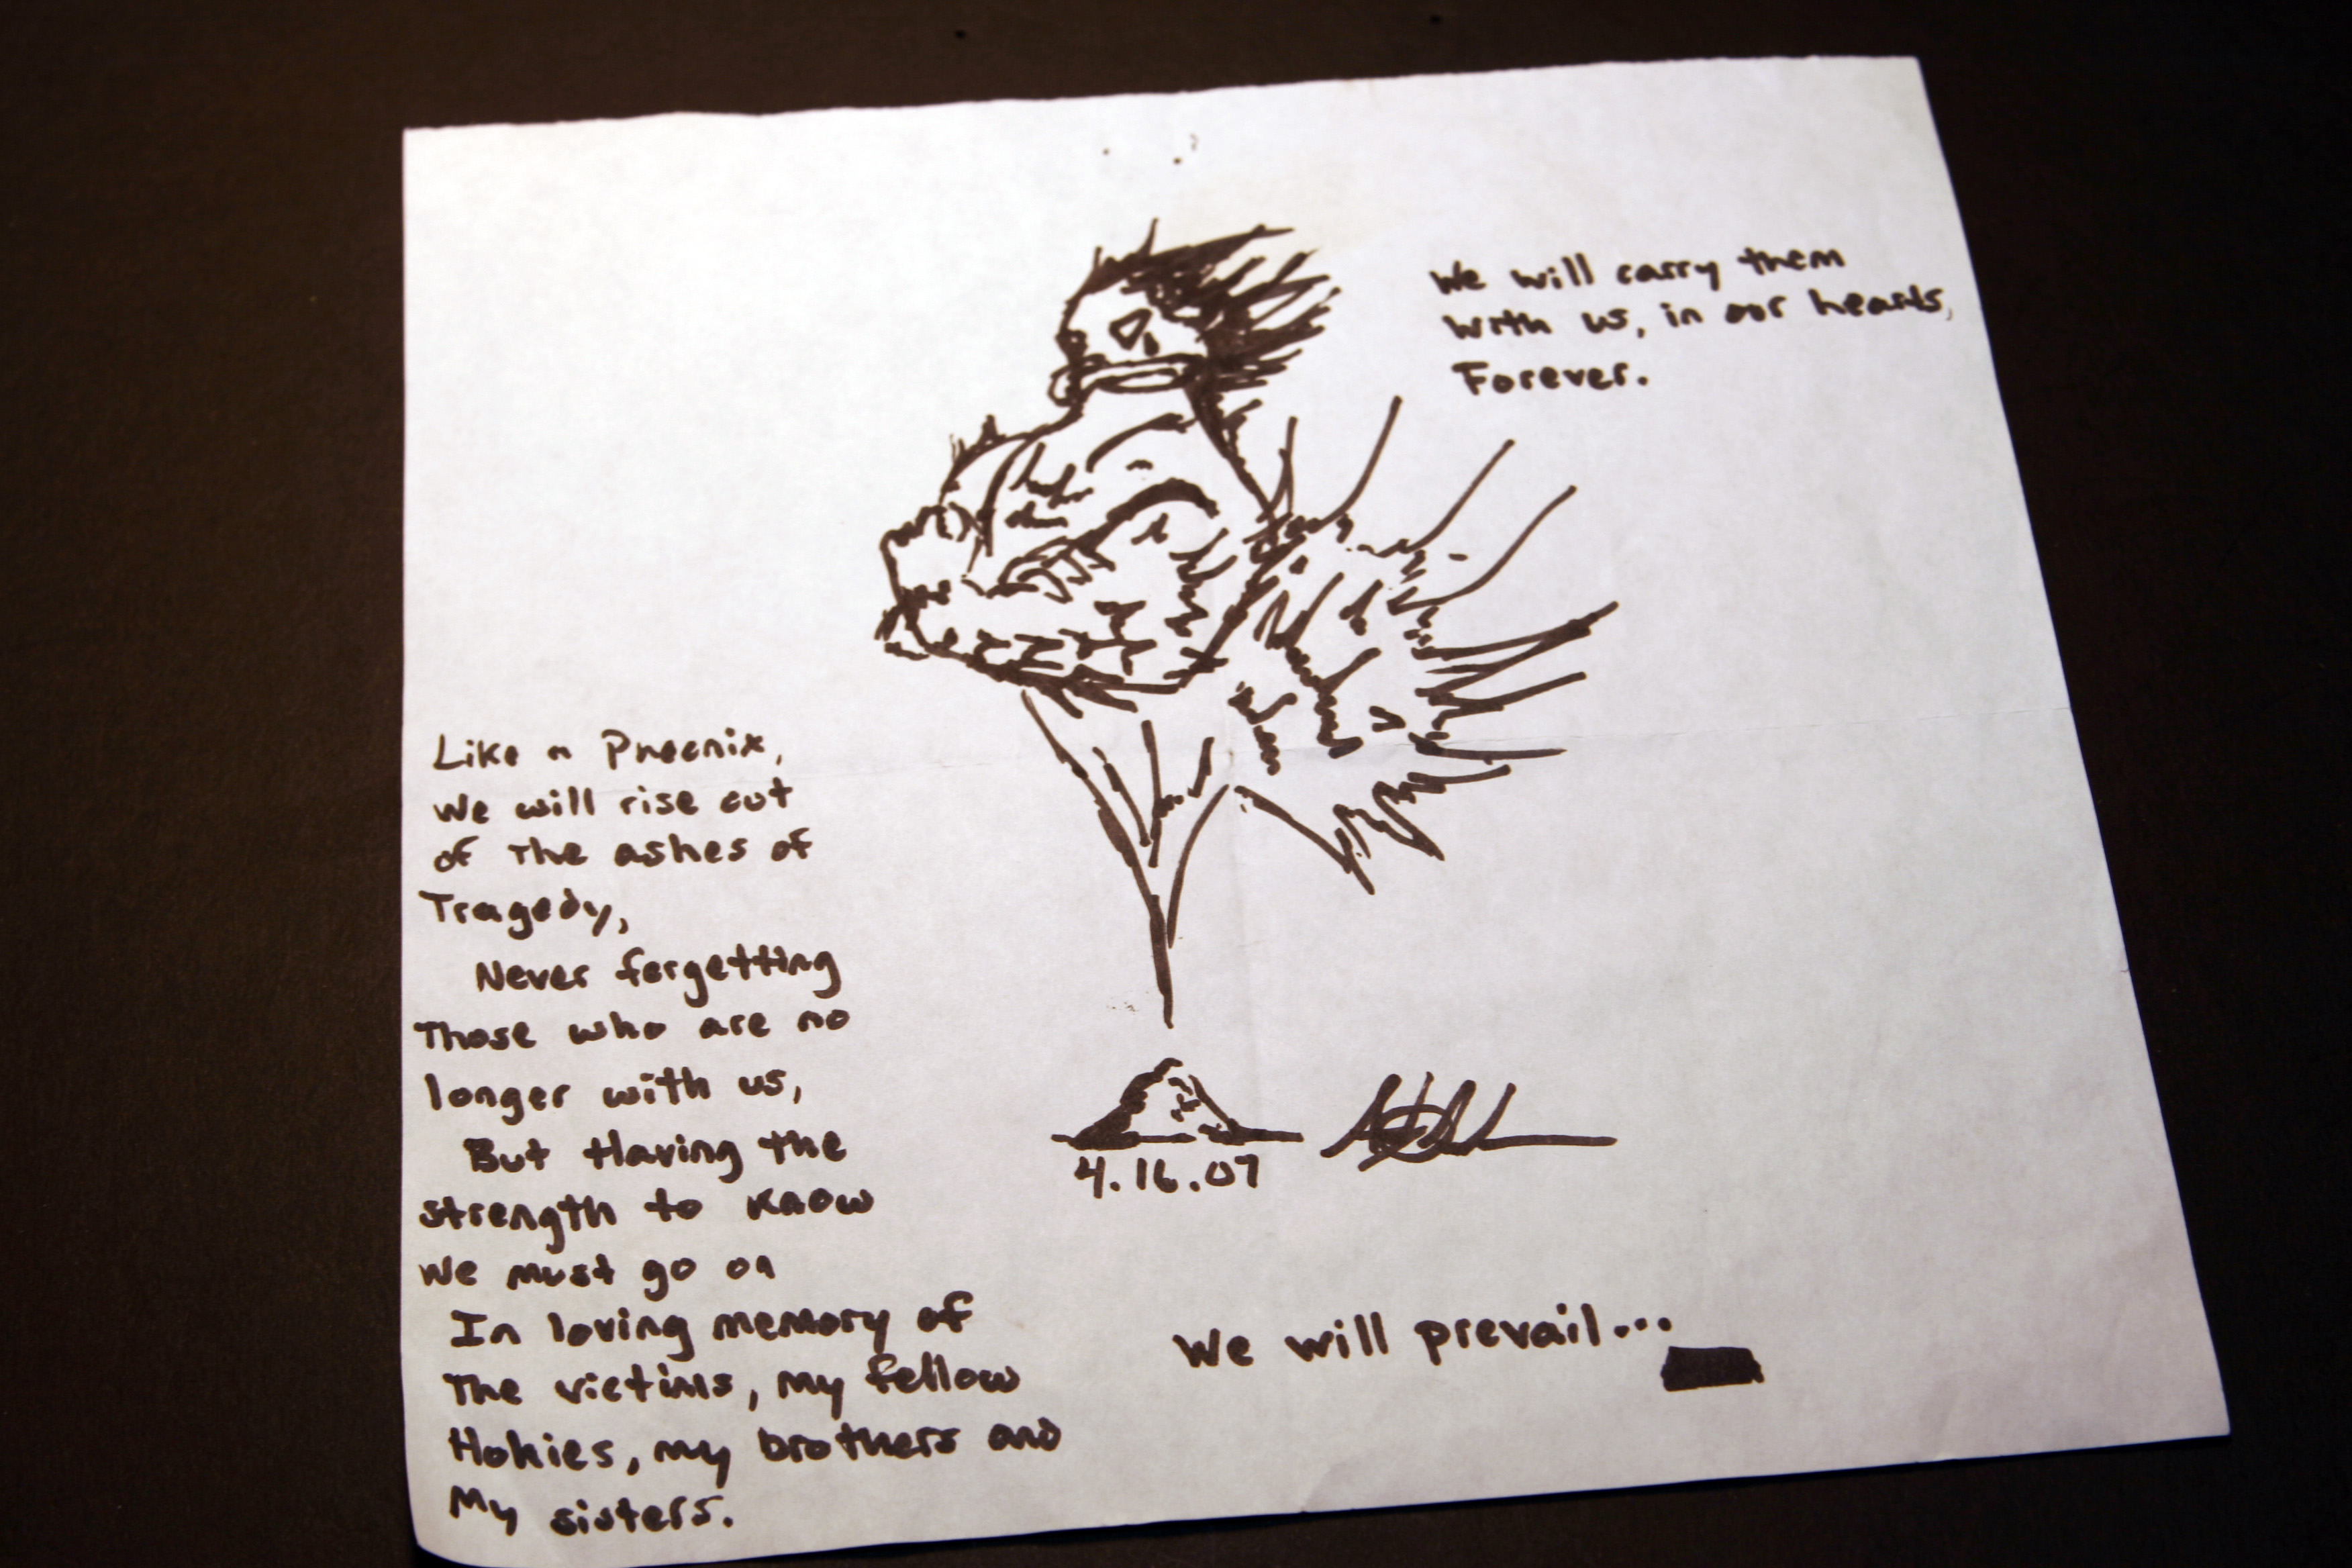 We will carry them
with us, in our hearts,
Forever.
Like a Phoenix,
we will rise out
of the ashes of
Tragedy,
Never forgetting
those who are no
longer with us,
But Having the
strength to know
we must go on
In loving memory of
the victims, my fellow
Hokies, my brothers and
My sisters.
4.16.07
We will prevail...